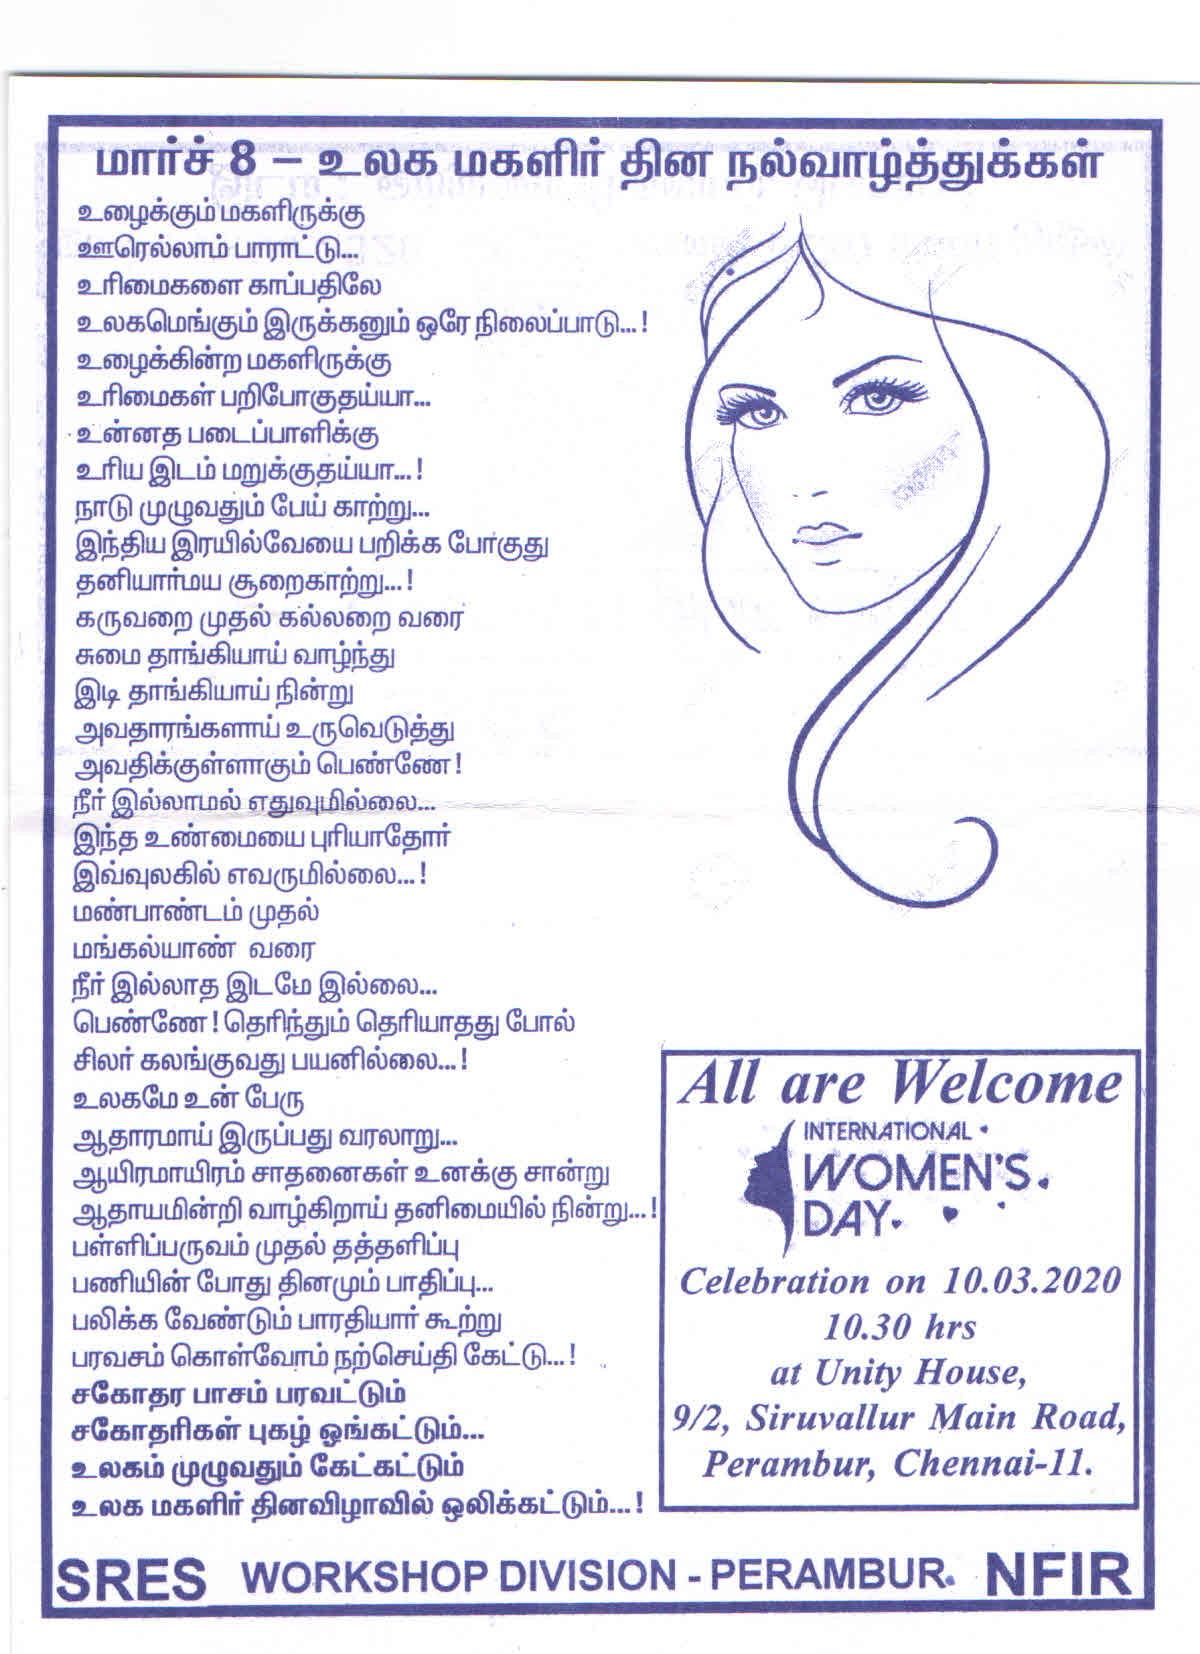 மார்ச் 8 – உலக மகளிர் தின நல்வாழ்த்துக்கள்
உழைக்கும் மகளிருக்கு
ஊரெல்லாம் பாராட்டு...
உரிமைகளை காப்பதிலே
உலகமெங்கும் இருக்கனும் ஒரே நிலைப்பாடு...!
உழைக்கின்ற மகளிருக்கு
உரிமைகள் பறிபோகுதய்யா...
உன்னத படைப்பாளிக்கு
உரிய இடம் மறுக்குதய்யா...!
நாடு முழுவதும் பேய் காற்று...
இந்திய இரயில்வேயை பறிக்க போகுது
தனியார்மய சூறைகாற்று...!
கருவறை முதல் கல்லறை வரை
சுமை தாங்கியாய் வாழ்ந்து
இடி தாங்கியாய் நின்று
அவதாரங்களாய் உருவெடுத்து
அவதிக்குள்ளாகும் பெண்ணே!
நீர் இல்லாமல் எதுவுமில்லை...
இந்த உண்மையை புரியாதோர்
இவ்வுலகில் எவருமில்லை...!
மண்பாண்டம் முதல்
மங்கல்யாண் வரை
நீர் இல்லாத இடமே இல்லை...
பெண்ணே! தெரிந்தும் தெரியாதது போல்
சிலர் கலங்குவது பயனில்லை...!
உலகமே உன் பேரு
ஆதாரமாய் இருப்பது வரலாறு...
ஆயிரமாயிரம் சாதனைகள் உனக்கு சான்று
ஆதாயமின்றி வாழ்கிறாய் தனிமையில் நின்று...!
பள்ளிப்பருவம் முதல் தத்தளிப்பு
பணியின் போது தினமும் பாதிப்பு...
பலிக்க வேண்டும் பாரதியார் கூற்று
பரவசம் கொள்வோம் நற்செய்தி கேட்டு...!
சகோதர பாசம் பரவட்டும்
சகோதரிகள் புகழ் ஓங்கட்டும்...
உலகம் முழுவதும் கேட்கட்டும்
உலக மகளிர் தினவிழாவில் ஒலிக்கட்டும்...!
All are Welcome
INTERNATIONAL
WOMEN'S
DAY
Celebration on 10.03.2020
10.30 hrs
at Unity House,
9/2, Siruvallur Main Road,
Perambur, Chennai-11.
SRES WORKSHOP DIVISION - PERAMBUR. NFIR